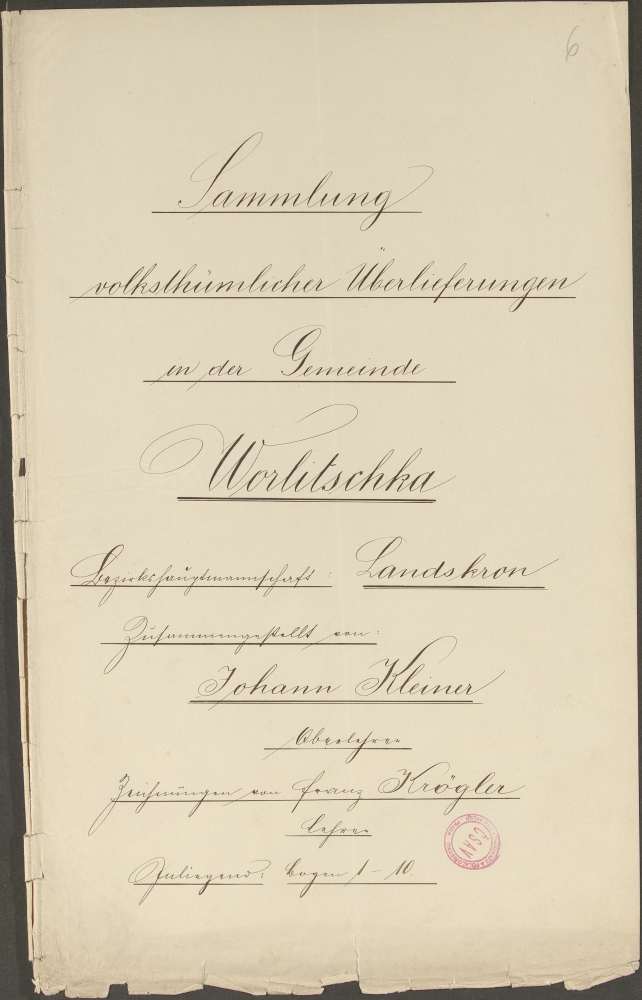 6
Sammlung
volksthümlicher Überlieferungen
in der Gemeinde
Worlitschka
Bezirkshauptmannschaft: Landskron
Zusammengestellt von:
Johann Kleiner
Oberlehrer
Zeichnungen von Franz Krögler
Lehrer
Inliegend: Bogen 1 - 10.
ČSAV